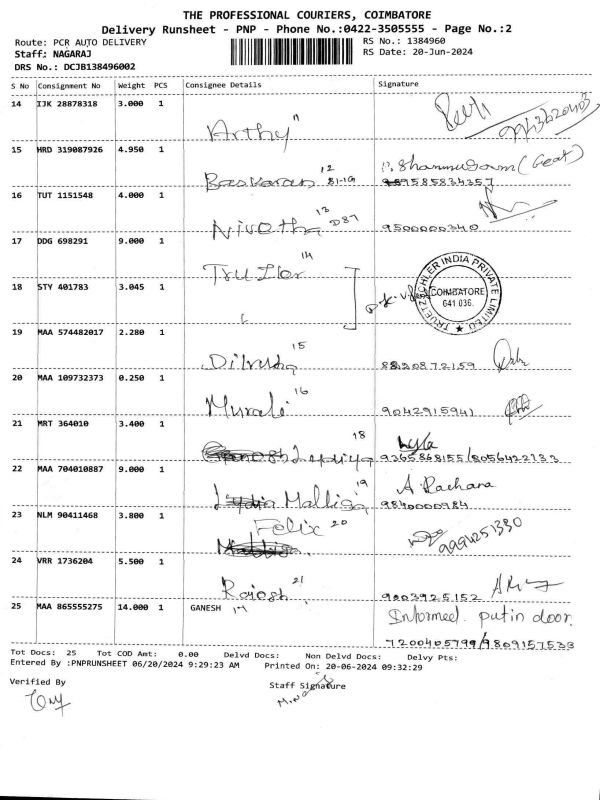 THE PROFESSIONAL COURIERS, COIMBATORE
Delivery Runsheet - PNP - Phone No.:0422-3505555 - Page No.:2
Route: PCR AUTO DELIVERY
RS No.: 1384960
Staff: NAGARAJ
RS Date: 20-Jun-2024
DRS No.: DCJB138496002
S No Consignment No Weight PCS Consignee Details Signature
14 IJK 28878318 3.000 1 Arthy 11
15 HRD 319087926 4.950 1 Baskaran 12 B1-1G
9585834357
16 TUT 1151548 4.000 1 Nivetha 13 D87 9500000340
17 DDG 698291 9.000 1 Truzler 14
18 STY 401783 3.045 1
TRUETZSCHLER INDIA PRIVATE LIMITED
COIMBATORE
641 036.
19 MAA 574482017 2.280 1 15 8830872159
20 MAA 109732373 0.250 1 Murali 16 9042915941
21 MRT 364010 3.400 1 18 9265868155/8056422733
22 MAA 704010887 9.000 1 Malliga 19 A Rachana
9840000984
23 NLM 90411468 3.800 1 Felix 20
24 VRR 1736204 5.500 1 Rajesh 21 9003925152
25 MAA 865555275 14.000 1 GANESH 17 Informed. put in door.
7200405799/9809157533
Tot Docs: 25 Tot COD Amt: 0.00 Delvd Docs: Non Delvd Docs: Delvy Pts:
Entered By :PNPRUNSHEET 06/20/2024 9:29:23 AM Printed On: 20-06-2024 09:32:29
Verified By
Staff Signature